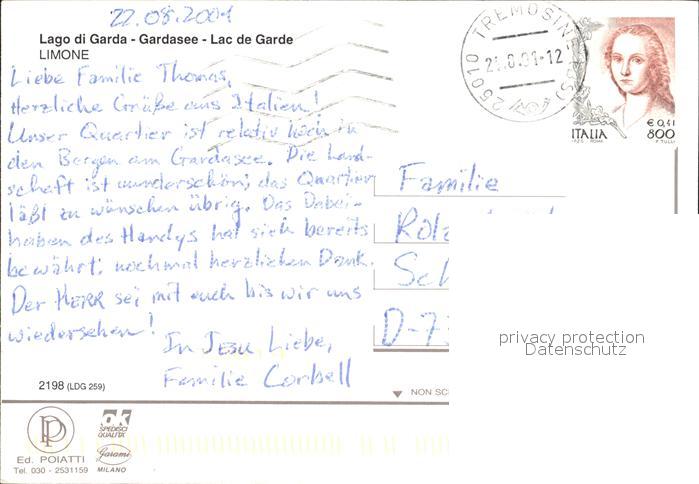 22.08.2001
Lago di Garda - Gardasee - Lac de Garde
LIMONE
Liebe Familie Thomas,
Herzliche Grüße aus Italien!
Unser Quartier ist relativ hoch in
den Bergen am Gardasee. Die Land-
schaft ist wunderschön; das Quartier
läßt zu wünschen übrig. Das Dabei-
haben des Handys hat sich bereits
bewährt; nochmal herzlichen Dank.
Der HERR sei mit euch bis wir uns
wiedersehen!
In JESU Liebe,
Familie Corbell
25010 TREMOSINE (BS)
€ 0,41
ITALIA 800
Familie
Rola
Sch
D-7
privacy protection
Datenschutz
2198 (LDG 259)
NON SC
PP
Ed. POIATTI
Tel. 030 - 2531159
OK
SPEDISCI
QUALITÀ
Garami
MILANO